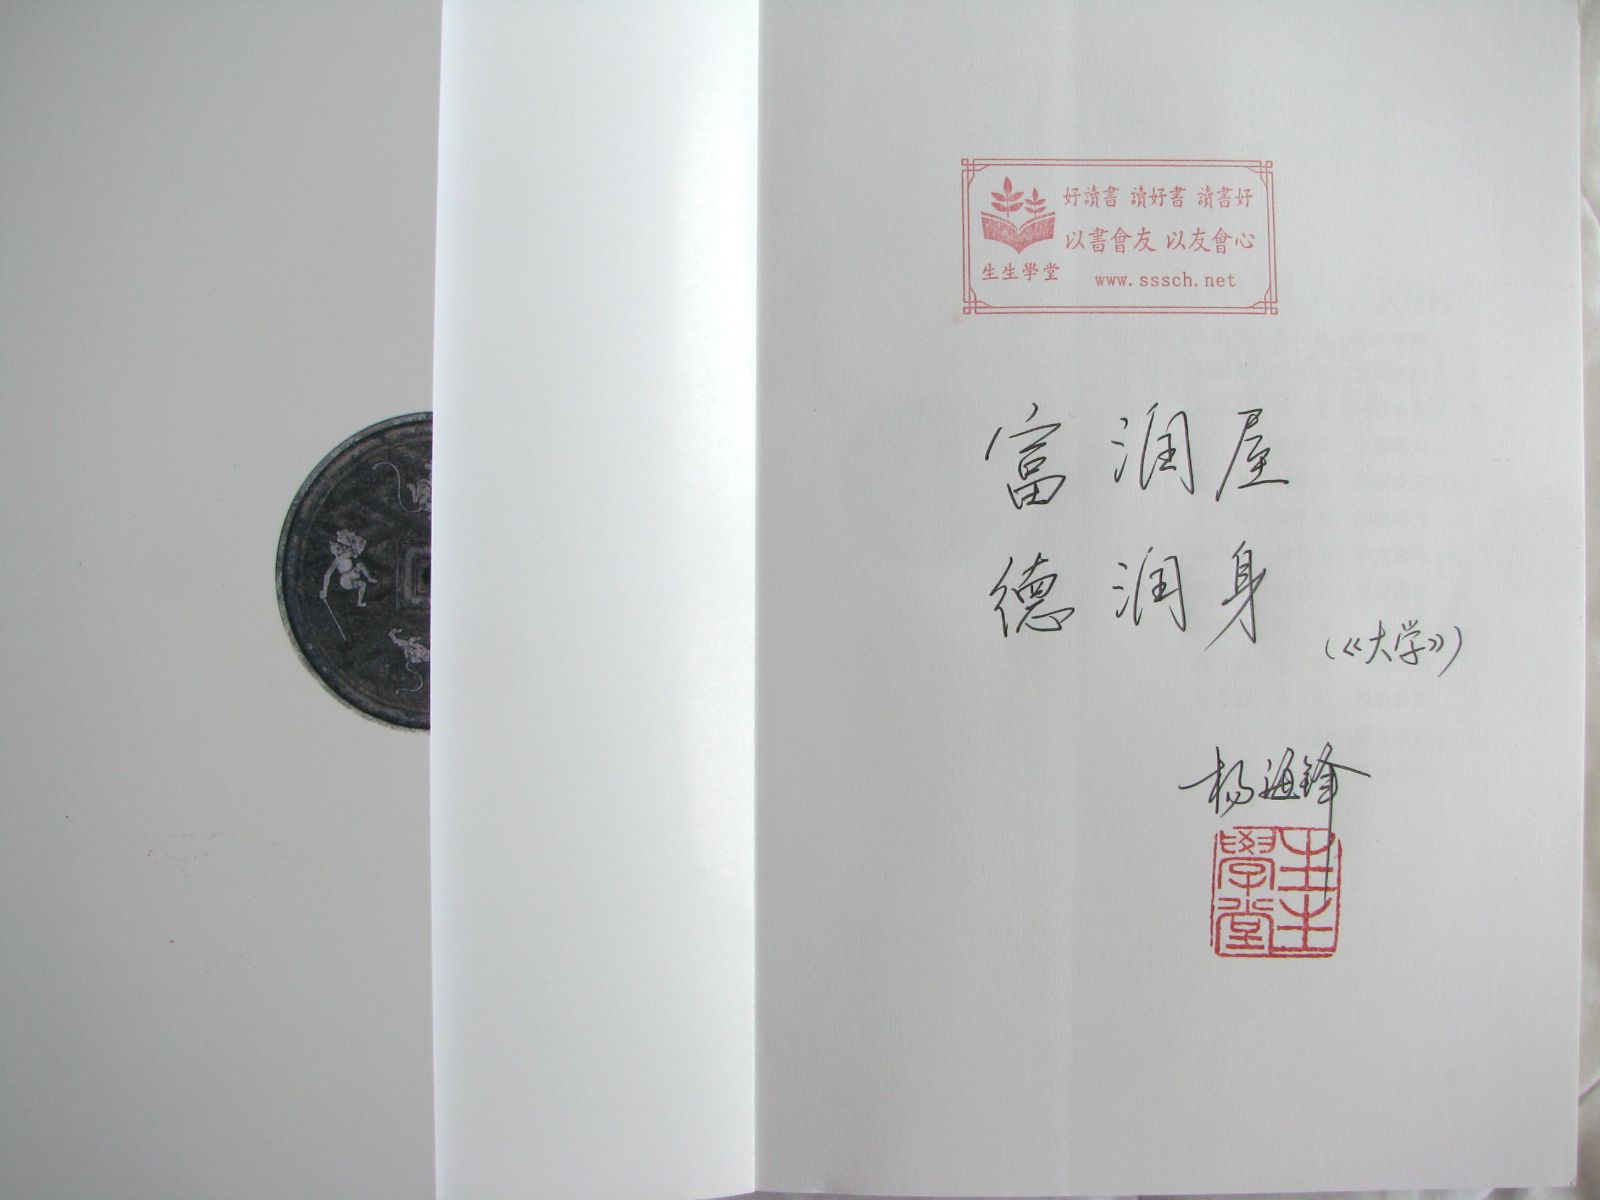 好讀書 讀好書 讀書好
以書會友 以友會心
生生學堂
www.sssch.net
富润屋
德润身
(《大学》)
杨海锋
生生學堂